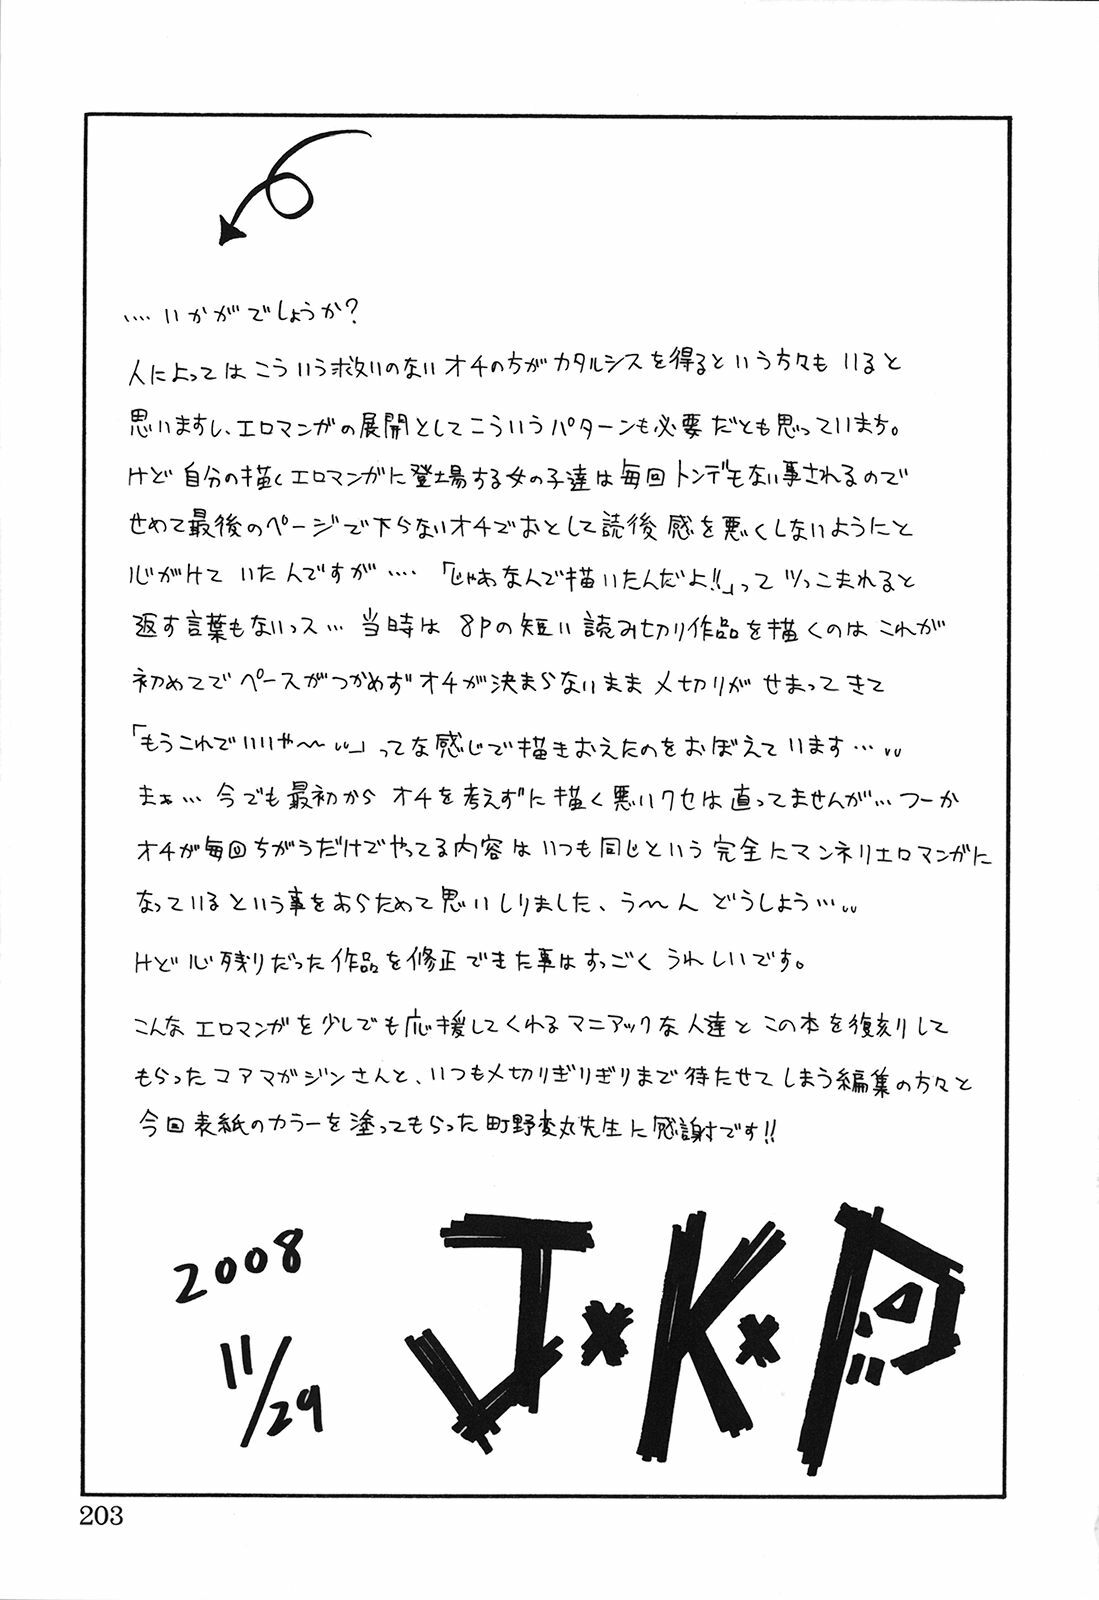 ‥‥いかがでしょうか?
人によってはこういう救いのないオチの方がカタルシスを得るという方々もいると
思いますし、エロマンガの展開としてこういうパターンも必要だとも思っています。
けど自分の描くエロマンガに登場する女の子達は毎回トンデモない事されるので
せめて最後のページで下らないオチでおとして読後感を悪くしないようにと
心がけていたんですが‥‥「じゃあなんで描いたんだよ!!」ってツっこまれると
返す言葉もないっス…当時は8Pの短い読み切り作品を描くのはこれが
初めてでペースがつかめずオチが決まらないままメ切りがせまってきて
「もうこれでいいや〜〜」ってな感じで描きおえたのをおぼえています…
まぁ…今でも最初からオチを考えずに描く悪いクセは直ってませんが…つーか
オチが毎回ちがうだけでやってる内容はいつも同じという完全にマンネリエロマンガに
なっているという事をあらためて思いしりました、う〜〜んどうしよう…
けど心残りだった作品を修正できた事はすっごくうれしいです。
こんなエロマンガを少しでも応援してくれるマニアックな人達とこの本を復刻して
もらったコアマガジンさんと、いつもメ切りぎりぎりまで待たせてしまう編集の方々と
今回表紙のカラーを塗ってもらった町野変丸先生に感謝です!!
2008
11/29
J×K×P
203